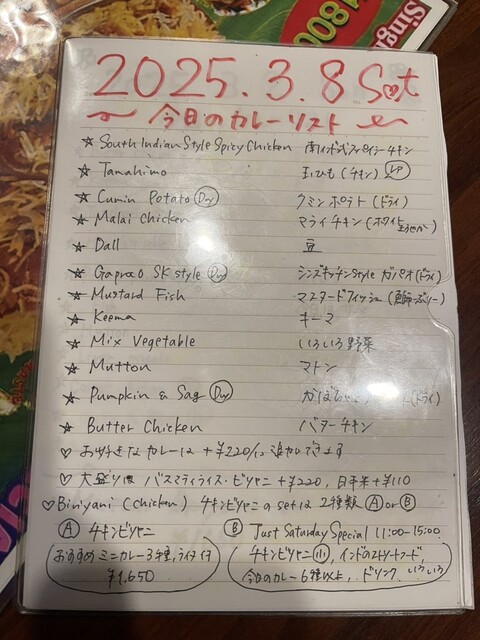 Sing
1800
2025.3.8 Sat
今日のカレーリスト
☆ South Indian Style Spicy Chicken 南インド式スパイシーチキン
☆ Tamahimo 玉ひも(チキン)
☆ Cumin Potato Dry クミンポテト(ドライ)
☆ Malai Chicken マライチキン(ホワイト
☆ Dall 豆
☆ Gapao SK style Dry シンズキッチンStyle ガパオ(ドライ)
☆ Mustard Fish マスタードフィッシュ(鰤ぶりー)
☆ Keema キーマ
☆ Mix Vegetable いろいろ野菜
☆ Mutton マトン
☆ Pumpkin & Sag Dry かぼちゃ (ドライ)
☆ Butter Chicken バターチキン
♡ お好きなカレーは +¥220/で追加できます
♡ 大盛りは バスマティライス・ビリヤニ +¥220, 日本米+¥110
♡ Biriyani (chicken) チキンビリヤニのsetは 2種類 Ⓐ or Ⓑ
Ⓐ チキンビリヤニ
おすすめミニカレー3種, ライタ
¥1,650
Ⓑ Just Saturday Special 11:00-15:00.
チキンビリヤニ小, インドのストリートフード,
今日のカレー6種以上, ドリンク. いろいろ